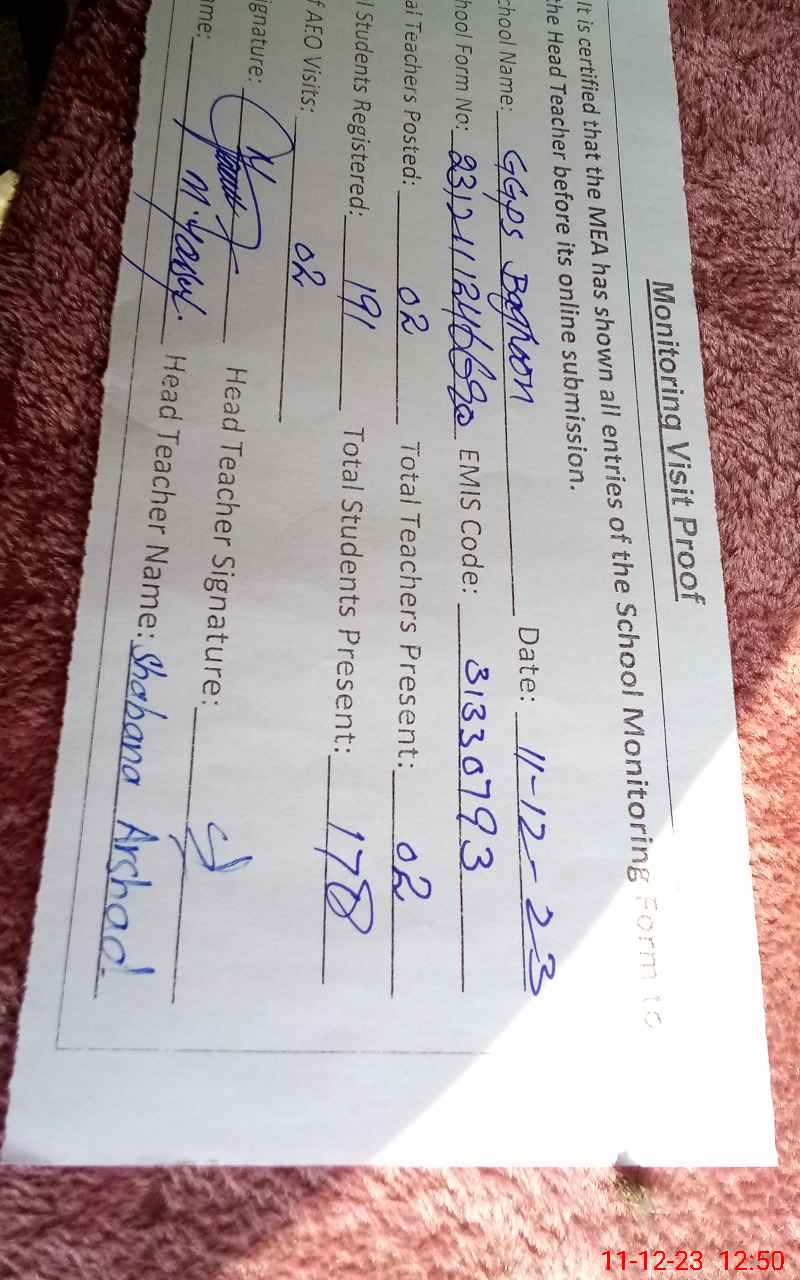 Monitoring Visit Proof
It is certified that the MEA has shown all entries of the School Monitoring Form to
the Head Teacher before its online submission.
chool Name: GGPS Date: 11-12-23
hool Form No: EMIS Code: 31330793
al Teachers Posted: 02 Total Teachers Present: 02
l Students Registered: 191 Total Students Present: 178
f AEO Visits: 02
ignature: Head Teacher Signature:
ame: Head Teacher Name: Shabana Arshad
11-12-23 12:50